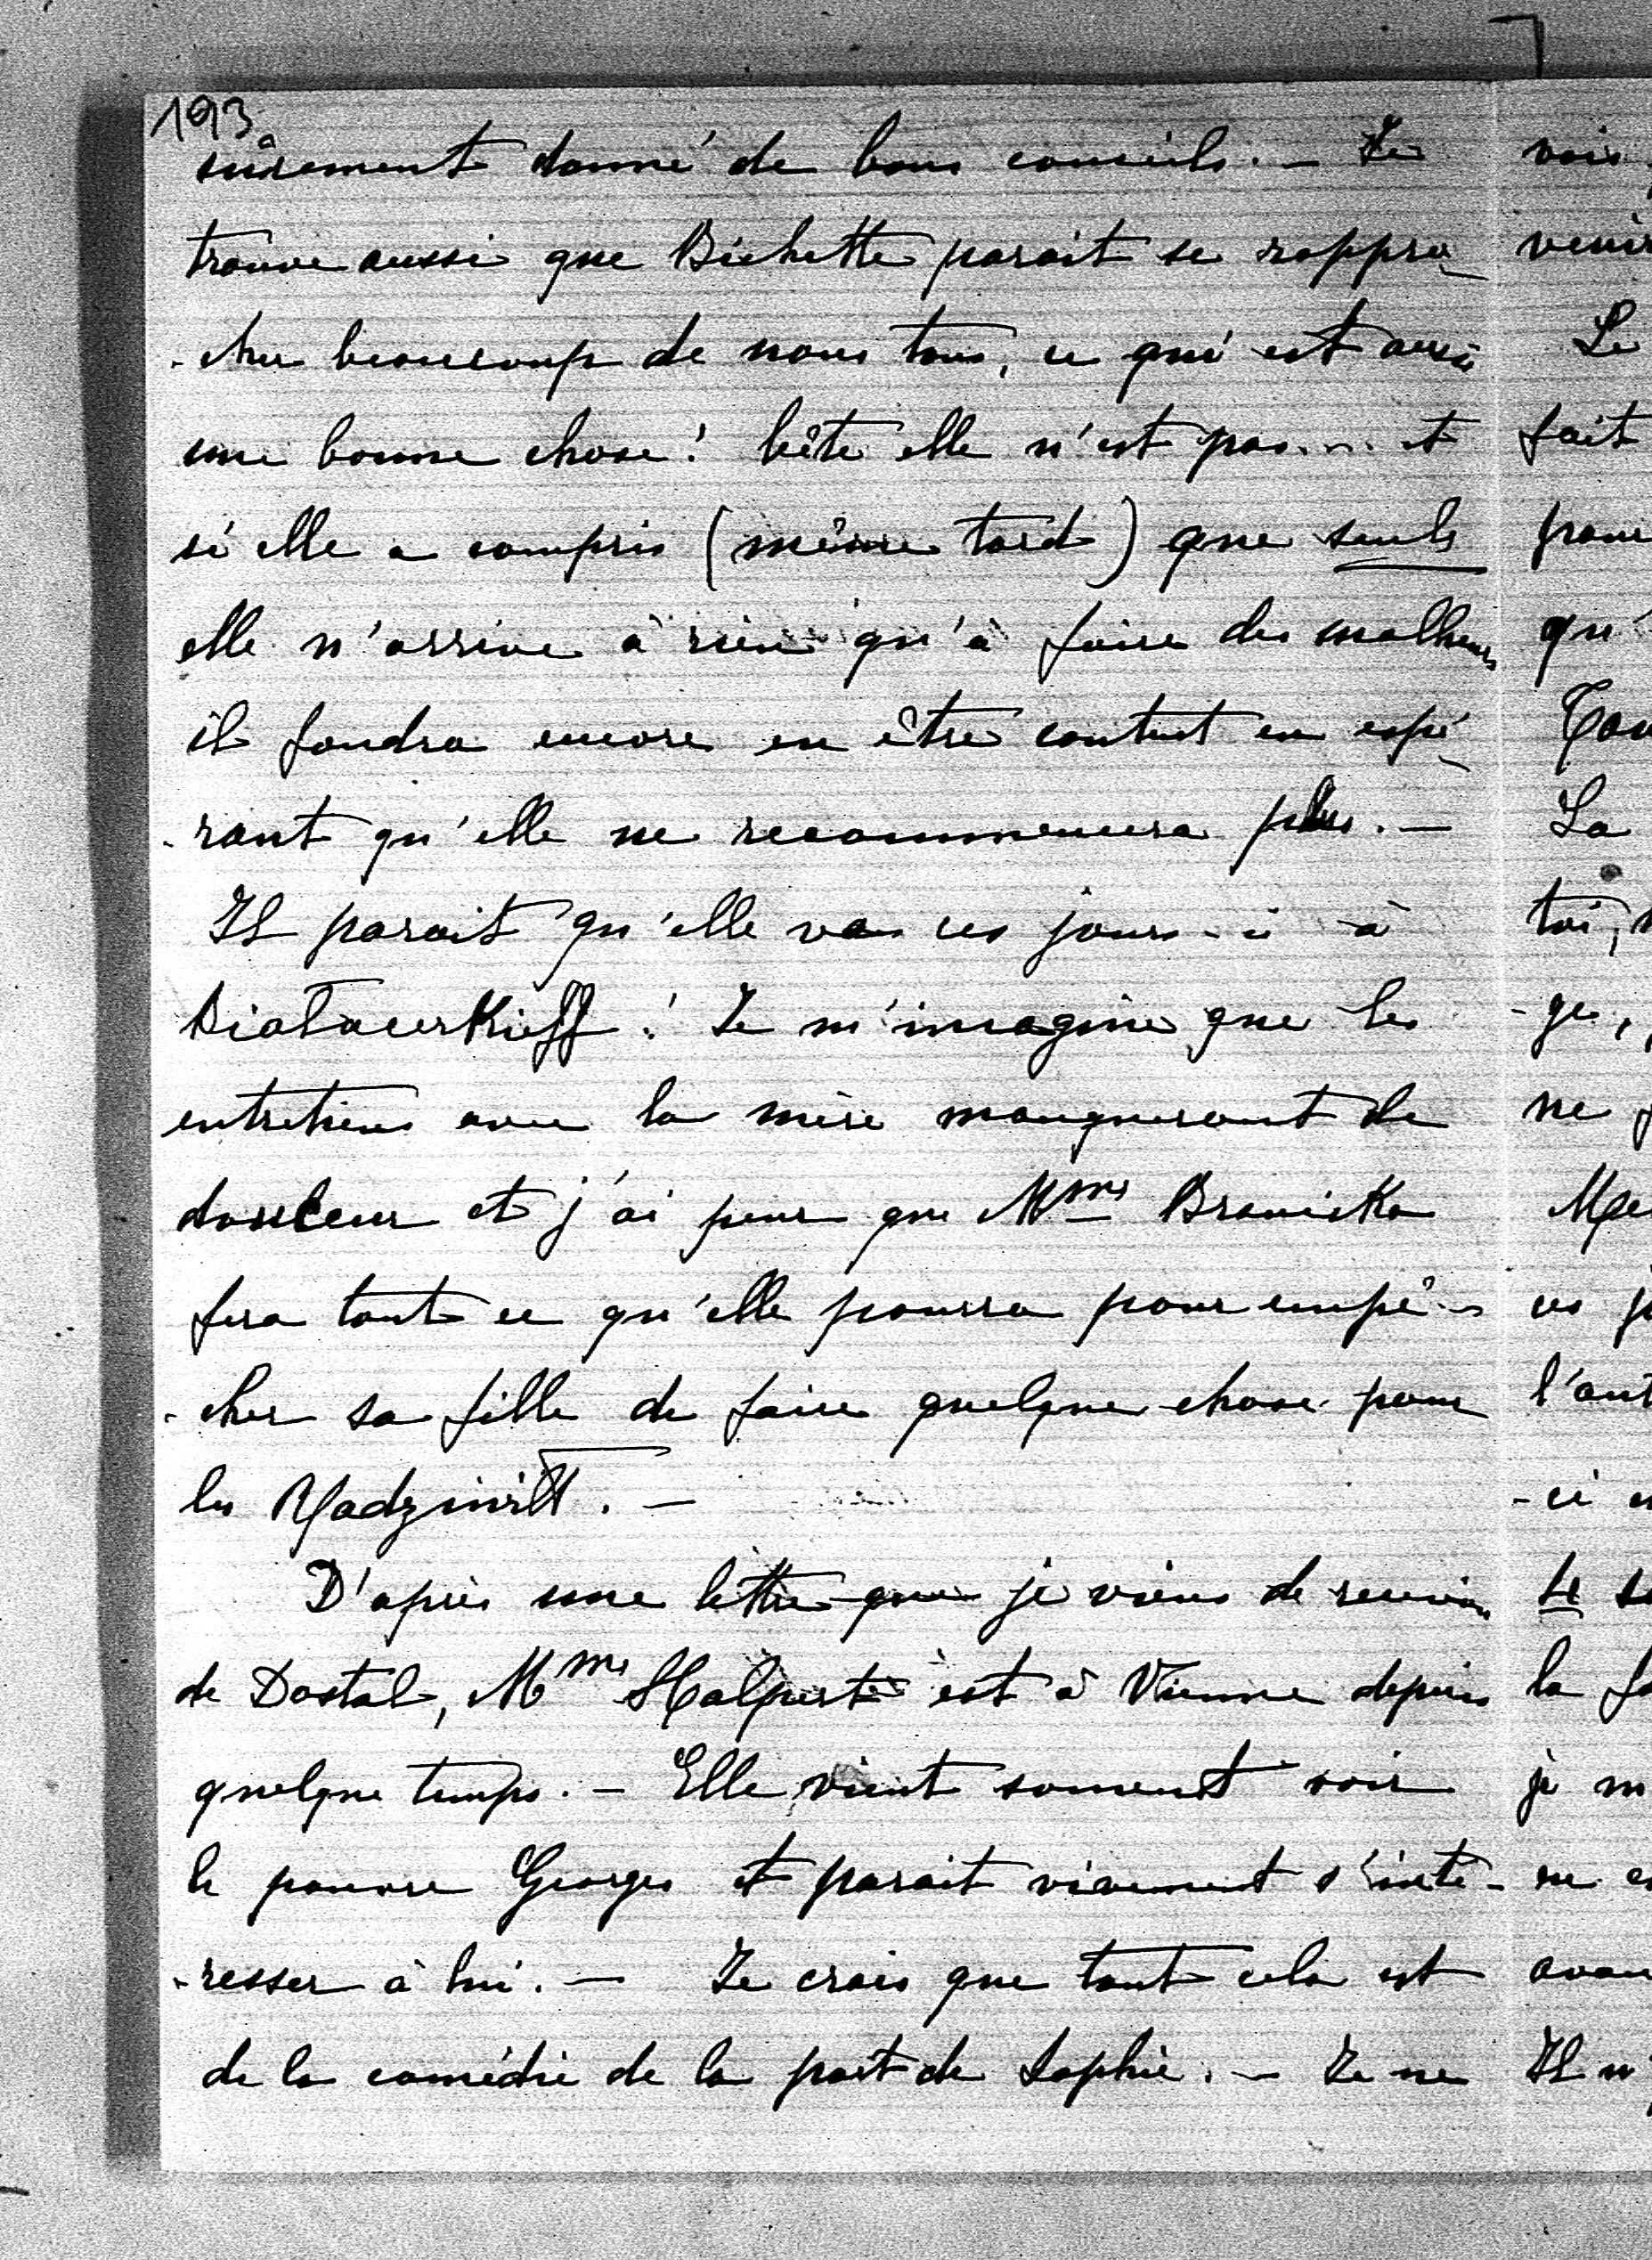 193
sûrement donné de bons conseils. – Je
trouve aussi que Bichette parait se rappro-
-cher beaucoup de nous tous, ce qui est aussi
une bonne chose! bête elle n'est pas.... et
si elle a compris (même tard) que seule
elle n'arrive à rien qu'à faire des malheurs
il faudra encore en être content en espé-
-rant qu'elle ne recommencera plus. –
Il parait qu'elle va ces jours-ci à
Bialacerkieff! Je m'imagine que les
entretiens avec la mère manqueront de
douceur et j'ai peur que Mme Branicka
fera tout ce qu'elle pourra pour empê-
-cher sa fille de faire quelque chose pour
les Radziwill. –
D'après une lettre que je viens de recevoir
de Dostal, Mme Halpert est à Vienne depuis
quelque temps. – Elle vient souvent voir
le pauvre Georges et parait vivement s'inté-
-resser à lui. – Je crois que tout cela est
de la comédie de la part de Sophie. – Je ne
vois
venir
Le
fait
pour
qu'
La
toi,
-ge,
ne
l'aut
-ci
se
la
je
ne
avau
Il n'